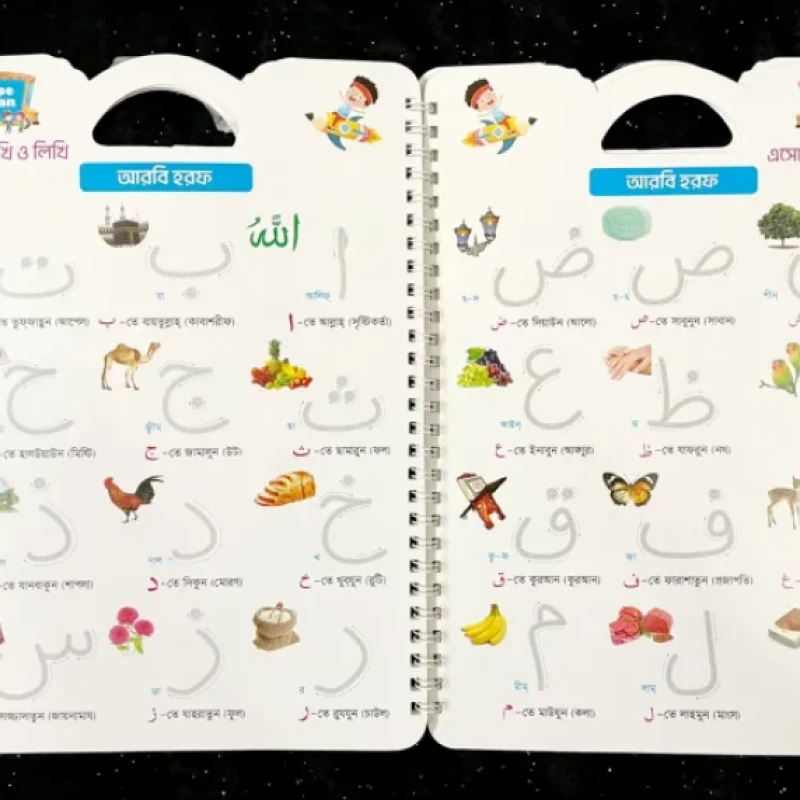 খি ও লিখি
আরবি হরফ
ت ب ا
الله
বা
আলিফ
তে তুফফাহুন (আপেল)
ب -তে বায়তুল্লাহ্ (কাবাশরীফ)
ا -তে আল্লাহ্ (সৃষ্টিকর্তা)
ح ج ث
জ্বীম
ছা
-তে হালউয়াউন (মিষ্টি)
ج -তে জামালুন (উট)
ث -তে ছামারুন (ফল)
ذ د خ
দাল
খ
-তে যানবাকুন (শাপলা)
د -তে দিকুন (মোরগ)
خ -তে খুবযুন (রুটি)
س ز ر
ঝা
র
(জায়নামায)
ز -তে যাহরাতুন (ফুল)
ر -তে রুযযুন (চাউল)
এসো
আরবি হরফ
ض ص
ض -তে দিয়াউন (আলো)
ص -তে সাবুনুন (সাবান)
ع ظ
আইন্
ع -তে ইনাবুন (আঙ্গুর)
ظ -তে যাফরুন (নখ)
ق ف
ফা
ق -তে কুরআন (কুরআন)
ف -তে ফারাশাতুন (প্রজাপতি)
غ -
م ل
মীম্
লাম্
م -তে মাউযুন (কলা)
ل -তে লাহমুন (মাংস)